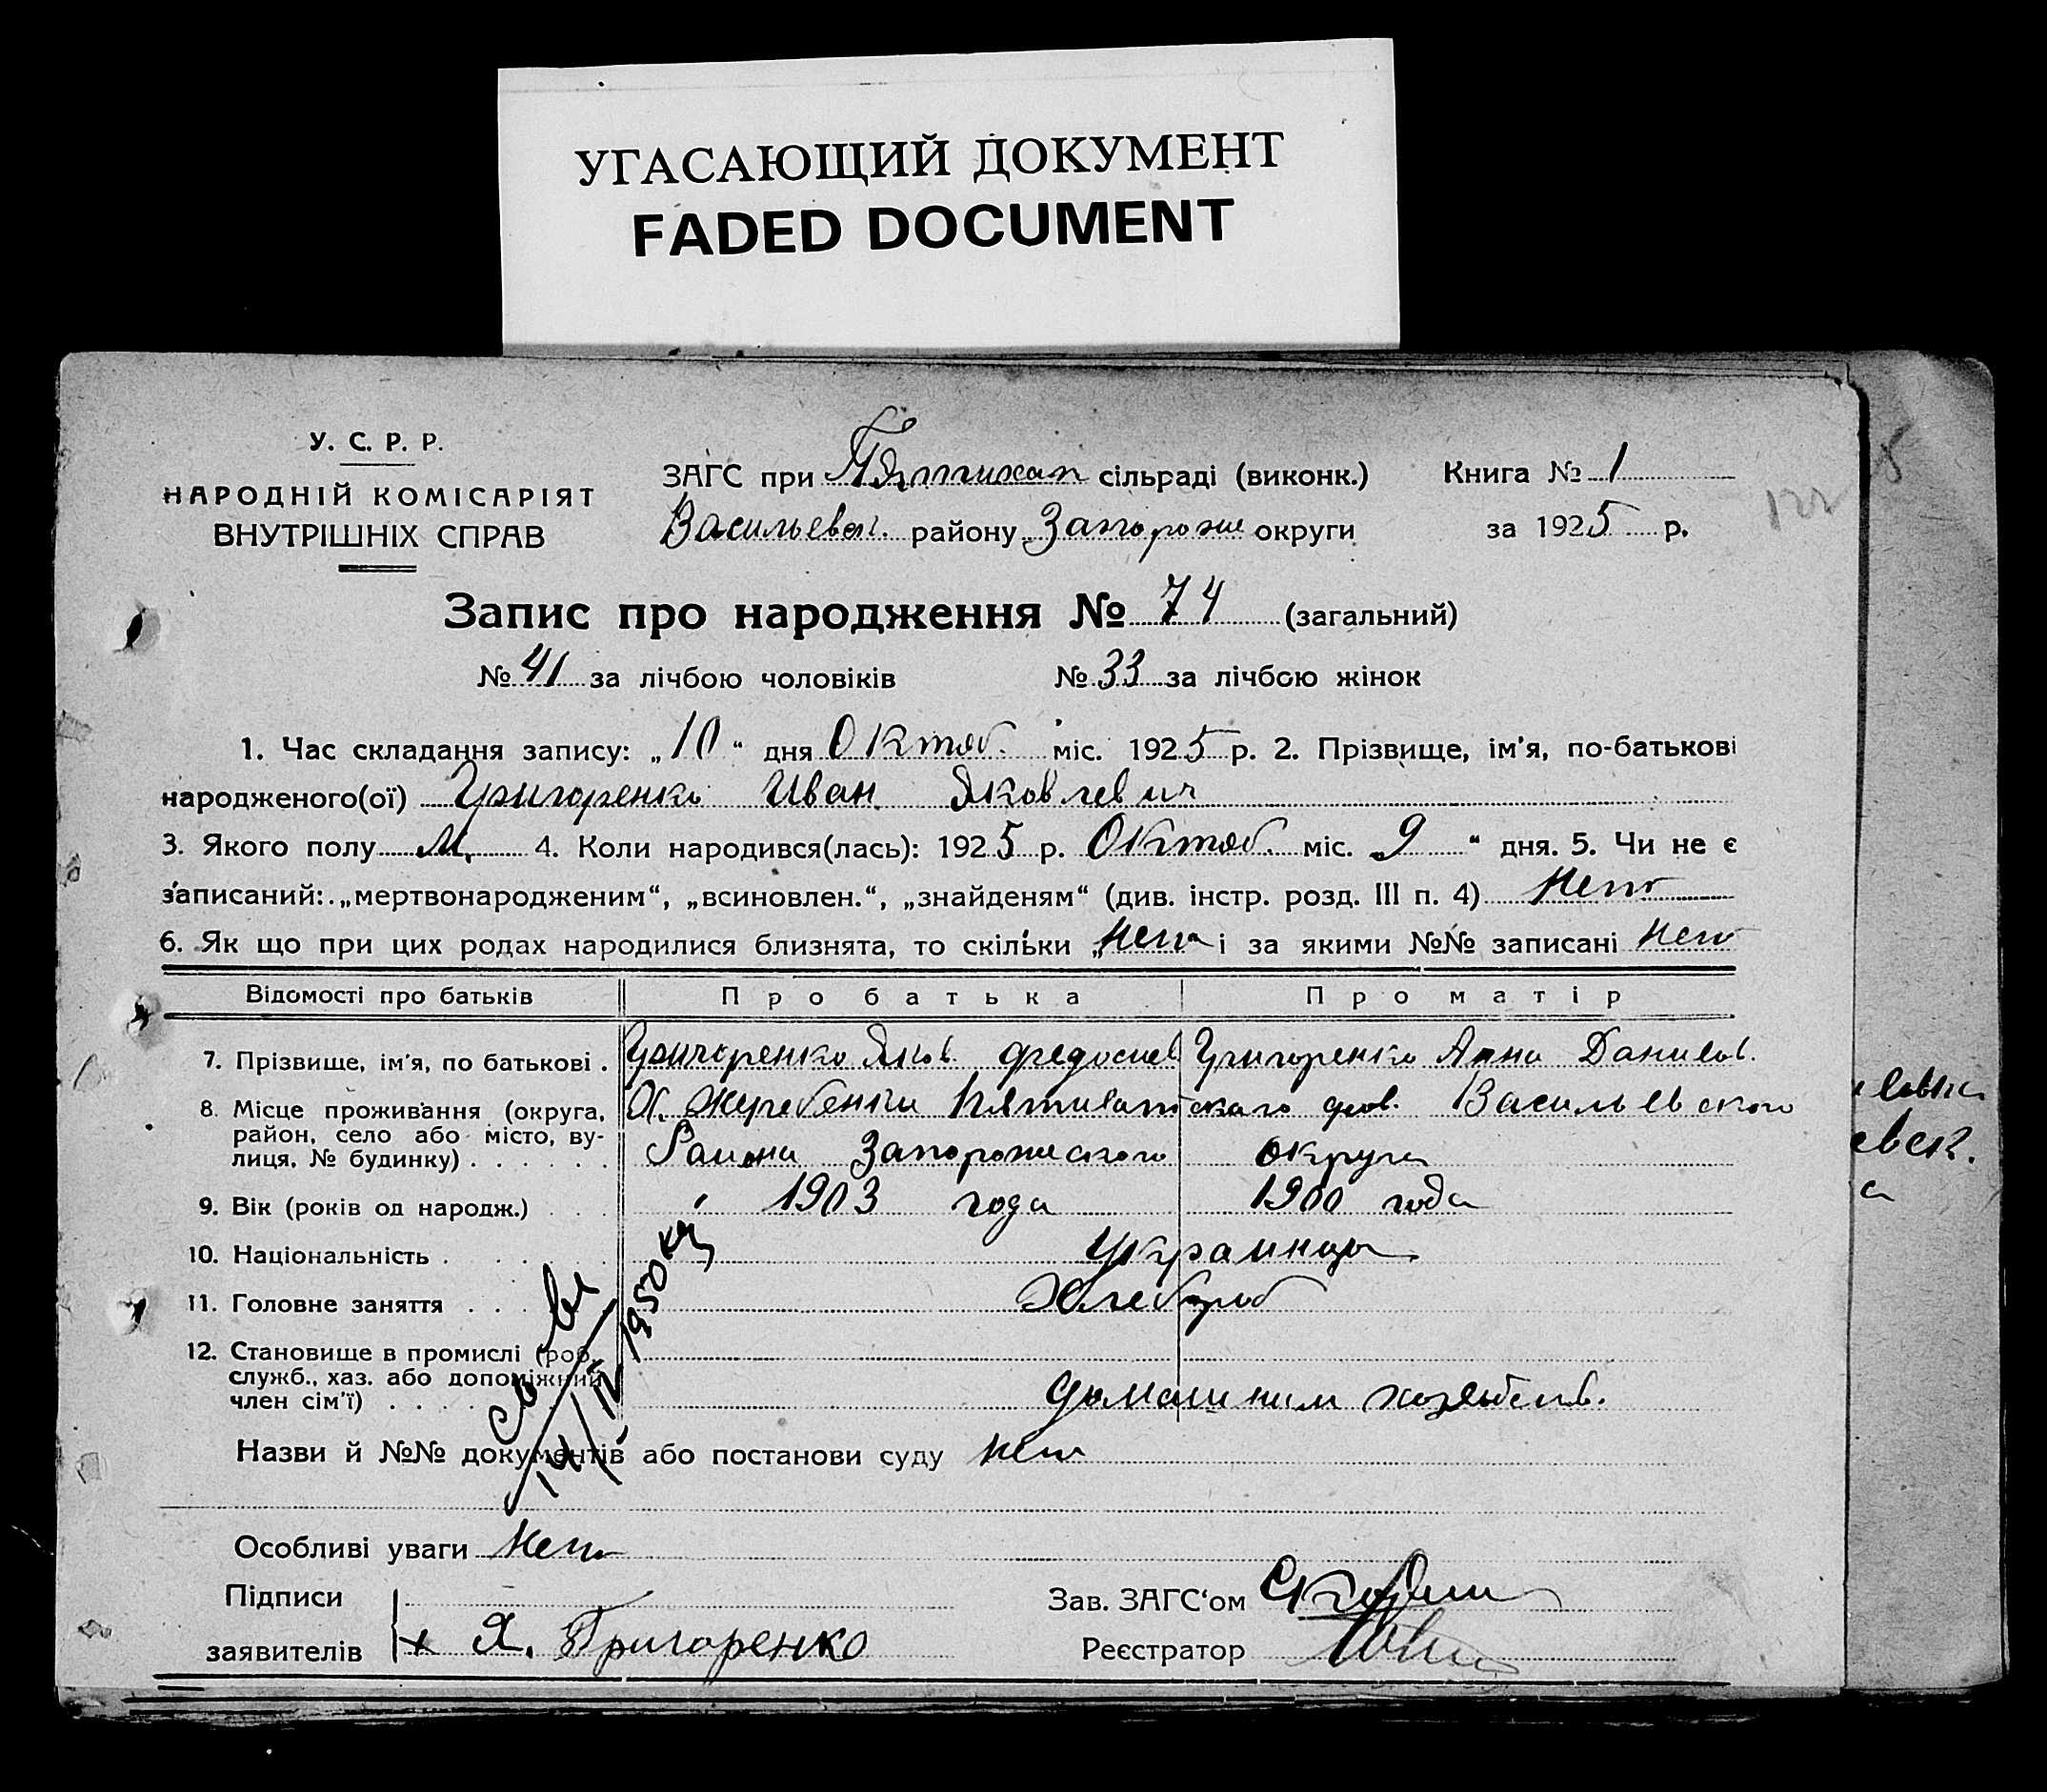 УГАСАЮЩИЙ ДОКУМЕНТ
FADED DOCUMENT
У. С. Р. Р.
НАРОДНІЙ КОМІСАРІЯТ
ВНУТРІШНІХ СПРАВ
ЗАГС при Пятихат сільраді (виконк.)
Васильевск. району Запорож округи
Книга № 1
за 1925 р.
122
Запис про народження № 74 (загальний)
№ 41 за лічбою чоловіків № 33 за лічбою жінок
1. Час складання запису: „10“ дня Октяб. міс. 1925 р. 2. Прізвище, ім'я, по-батькові
народженого(ої) Григоренко Иван Яковлевич
3. Якого полу М. 4. Коли народився(лась): 1925 р. Октяб. міс. 9 “ дня. 5. Чи не є
записаний: „мертвонародженим“, „всиновлен.“, „знайденям“ (див. інстр. розд. III п. 4) нет
6. Як що при цих родах народилися близнята, то скільки „нет і за якими №№ записані нет
Відомості про батьків Про батька Про матір
7. Прізвище, ім'я, по батькові . Григоренко Яков. Федосиев Григоренко Анна Данилов.
8. Місце проживання (округа, район, село або місто, вулиця, № будинку) . . . . . . Х. Жеребенки Пятихатского Васильевского
Района Запорожского округа
9. Вік (років од народж.) . . . 1903 года 1900 года
10. Національність . . . . . Украинцы
11. Головне заняття . . . . Хлебороб
12. Становище в промислі (роб. служб., хаз. або допоміжний член сім'ї) . . . . . домашним хозяйств.
14/IV 1950
Назви й №№ документів або постанови суду нет
Особливі уваги нет
Підписи
заявителів + Я. Григоренко
Зав. ЗАГС‘ом
Реєстратор